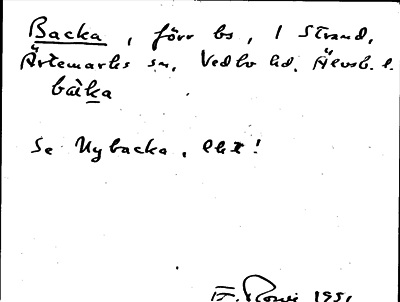 Backa, förr bs, 1 Strand,
Ärtemarks sn, Vedbo hd. Älvsb. l.
bàka
Se Nybacka, ehx!
F. 1951